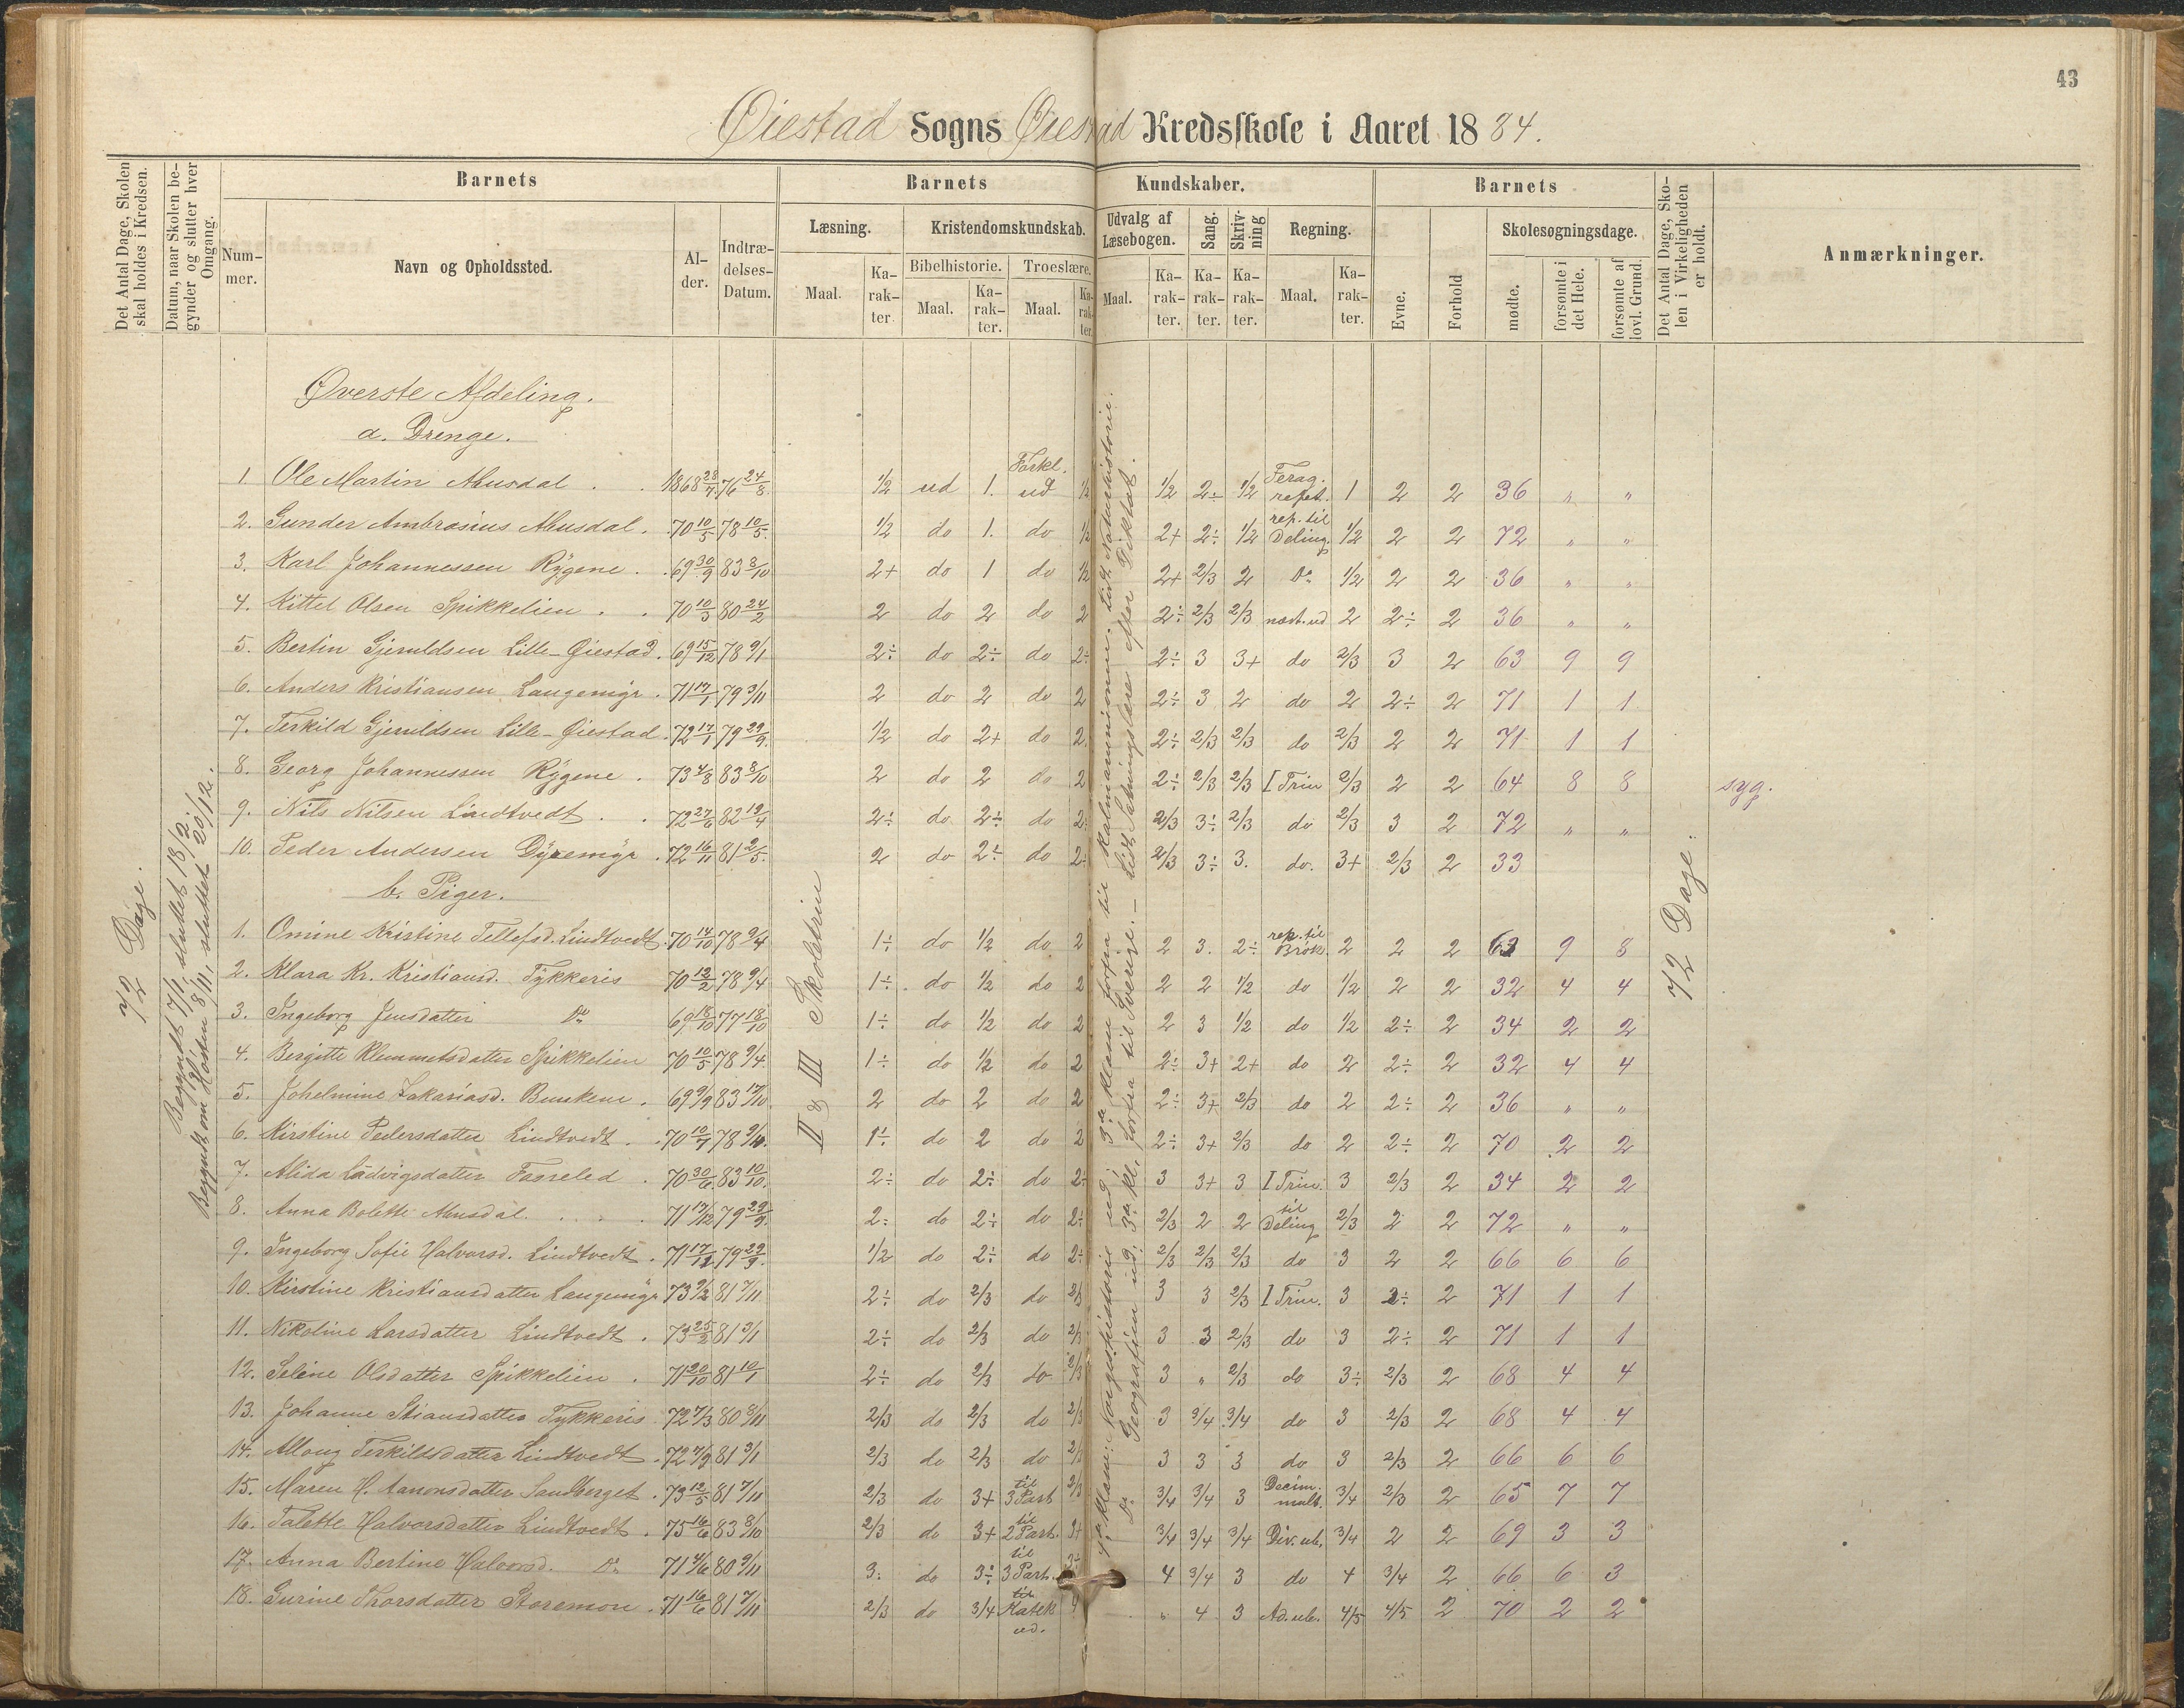 43
Øiestad Sogns Øiestad Kredsskole i Aaret 1884.
Det Antal Dage, Skolen skal holdes i Kredsen.
Datum, naar Skolen begynder og slutter hver Omgang.
Barnets
Nummer.
Navn og Opholdssted.
Alder.
Indtrædelses-Datum.
Barnets Kundskaber.
Læsning.
Maal.
Karakter.
Kristendomskundskab.
Bibelhistorie.
Maal.
Karakter.
Troeslære.
Maal.
Karakter.
Udvalg af Læsebogen.
Maal.
Karakter.
Sang.
Karakter.
Skrivning
Karakter.
Regning.
Maal.
Karakter.
Barnets
Evne.
Forhold
Skolesøgningsdage.
mødte.
forsømte i det Hele.
forsømte af lovl. Grund.
Det Antal Dage, Skolen i Virkeligheden er holdt.
Anmærkninger.
72 Dage.
Begyndt 7/1, sluttet 18/2.
Begyndt om Høsten 8/11, sluttet 20/12.
Øverste Afdeling.
a. Drenge.
II & III Skoletrin
1 Ole Martin Ahusdal . . 1868 28/7 76 24/8 1/2 ud 1. Forkl. ud 1/2 1/2 2÷ 1/2 Ferag. repet. 1 2 2 36 " "
2. Gunder Ambrosius Ahusdal . 70 10/5 78 10/5 1/2 do 1. do 1/2 2+ 2÷ 1/2 rep. til Deling. 1/2 2 2 72 " "
3. Karl Johannessen Rygene . . 69 30/9 83 8/10 2+ do 1 do 1/2 2+ 2/3 2 Do 1/2 2 2 36 " "
4. Kittel Olsen Spikkelien . . 70 10/3 80 24/2 2 do 2 do 2 2÷ 2/3 2/3 næst. ud 2 2÷ 2 36 " "
5. Bertin Gjeruldsen Lille-Øiestad . 69 15/12 78 9/1 2÷ do 2÷ do 2÷ 2÷ 3 3+ do 2/3 3 2 63 9 9
6. Anders Kristiansen Langemyr . 71 17/1 79 3/11 2 do 2 do 2 2÷ 3 2 do 2 2÷ 2 71 1 1
7. Terkild Gjeruldsen Lille-Øiestad . 72 17/1 79 29/9 1/2 do 2+ do 2. 2÷ 2/3 2/3 do 2/3 2 2 71 1 1
8. Georg Johannessen Rygene . 73 4/8 83 8/10 2 do 2 do 2 2÷ 2/3 2/3 I Trin 2/3 2 2 64 8 8 syg.
9. Nils Nilsen Lindtvedt . . 72 27/6 82 19/4 2÷ do 2÷ do 2÷ 2/3 3÷ 2/3 do 2/3 3 2 72 " "
10. Peder Andersen Dyremyr . 72 16/11 81 2/5 2 do 2÷ do 2÷ 2/3 3÷ 3. do. 3+ 2/3 2 33
b. Piger.
1. Omine Kristine Tellefsd. Lindtvedt . 70 14/10 78 9/4 1÷ do 1/2 do 2 2 3. 2÷ rep. til Brøk. 2 2 2 63 9 8
2. Klara Kr. Kristiansd. Tykkeris 70 12/2 78 9/4 1÷ do 1/2 do 2 2 2 1/2 do 1/2 2 2 32 4 4
3. Ingeborg Jensdatter Do 69 18/10 77 18/10 1÷ do 1/2 do 2 2 3 1/2 do 1/2 2÷ 2 34 2 2
4. Bergitte Klemmetsdatter Spikkelien 70 10/5 78 9/4 1÷ do 1/2 do 2 2÷ 3+ 2+ do 2 2÷ 2 32 4 4
5. Johelmine Zakariasd. . 69 9/9 83 17/10 2 do 2 do 2 2÷ 3+ 2/3 do 2 2÷ 2 36 " "
6. Kirstine Pedersdatter Lindtvedt . . 70 10/7 78 1÷ do 2 do 2 2÷ 3+ 2/3 do 2 2÷ 2 70 2 2
7. Alida Ludvigsdatter Fasseled . 70 30/6 83 10/10 2÷ do 2÷ do 2÷ 3 3+ 3 I Trin. 3 2/3 2 34 2 2
8. Anna Bolette Ahusdal . . . 71 17/12 79 29/9 2÷ do 2÷ do 2÷ 2/3 2 2 til Deling 2/3 2 2 72 " "
9. Ingeborg Sofie Halvorsd. Lindtvedt . 71 79 29/9 1/2 do 2÷ do 2÷ 2/3 2/3 2/3 do 3 2 2 66 6 6
10. Kirstine Kristiansdatter Langemyr 73 9/2 81 7/11 2÷ do 2/3 do 2/3 3 3 2/3 I Trin. 3 2÷ 2 71 1 1
11. Nikoline Larsdatter Lindtvedt . 73 25/2 81 3/1 2÷ do 2/3 do 2/3 3 3 2/3 do 3 2÷ 2 71 1 1
12. Seline Olsdatter Spikkelien . 71 20/10 81 10/1 2÷ do 2/3 do 2/3 3 " 2/3 do 3÷ 2/3 2 68 4 4
13. Johanne Stiansdatter Tykkeris 72 7/3 80 8/11 2/3 do 2/3 do 2/3 3 3/4 3/4 do 3 2/3 2 68 4 4
14. Terkildsdatter Lindtvedt . 72 7/9 81 3/1 2/3 do 2/3 do 2/3 3 3 3 do 3 2/3 2 66 6 6
15. Maren H. Aanonsdatter Sandberget . 73 12/5 81 7/11 2/3 do 3+ til 3 Part 2/3 3/4 3/4 3 Decim. mult. 3/4 2/3 2 65 7 7
16. Talette Halvorsdatter Lindtvedt . 75 16/6 83 8/10 2/3 do 3+ til 2 Part. 3+ 3/4 3/4 3/4 Div. ub. 3/4 2 2 69 3 3
17. Anna Bertine Halvorsd. Do 71 4/6 80 9/11 3÷ do 3÷ til 3 Part. 3÷ 4 3/4 3 do 4 3/4 2 66 6 3
18. Gurine Thorsdatter Staremon . 71 16/6 81 7/11 2/3 do 3/4 til Katek ud. 4 " 4 3 Ad. ub. 4/5 4/5 2 70 2 2
4de Klasse: Norgeshistorie ud; 3de Klasse forfra til Kalmarunionen. Lidt Naturhistorie.
Do Geografien ud; 3de Kl. forfra til Sverige. – Lidt Sætningslære efter Diktat.
72 Dage.